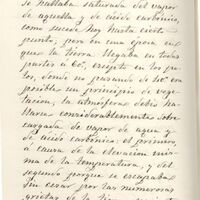 se hallaba saturada del vapor
de aquella y de ácido carbónico,
como sucede hoy hasta cierto
punto, pero en una época en
que la tierra llegaba en todas
partes á 60°, escepto en los po-
los, donde no pasando de 40° era
posible un principio de vege-
tacion, la atmósfera debió ha-
llarse considerablemente sobre
cargada de vapor de agua y
de ácido carbónico: el primero
á causa de la elevacion mis-
ma de la temperatura, y del
segundo porque se escapaba
sin cesar por las numerosas
grietas de la